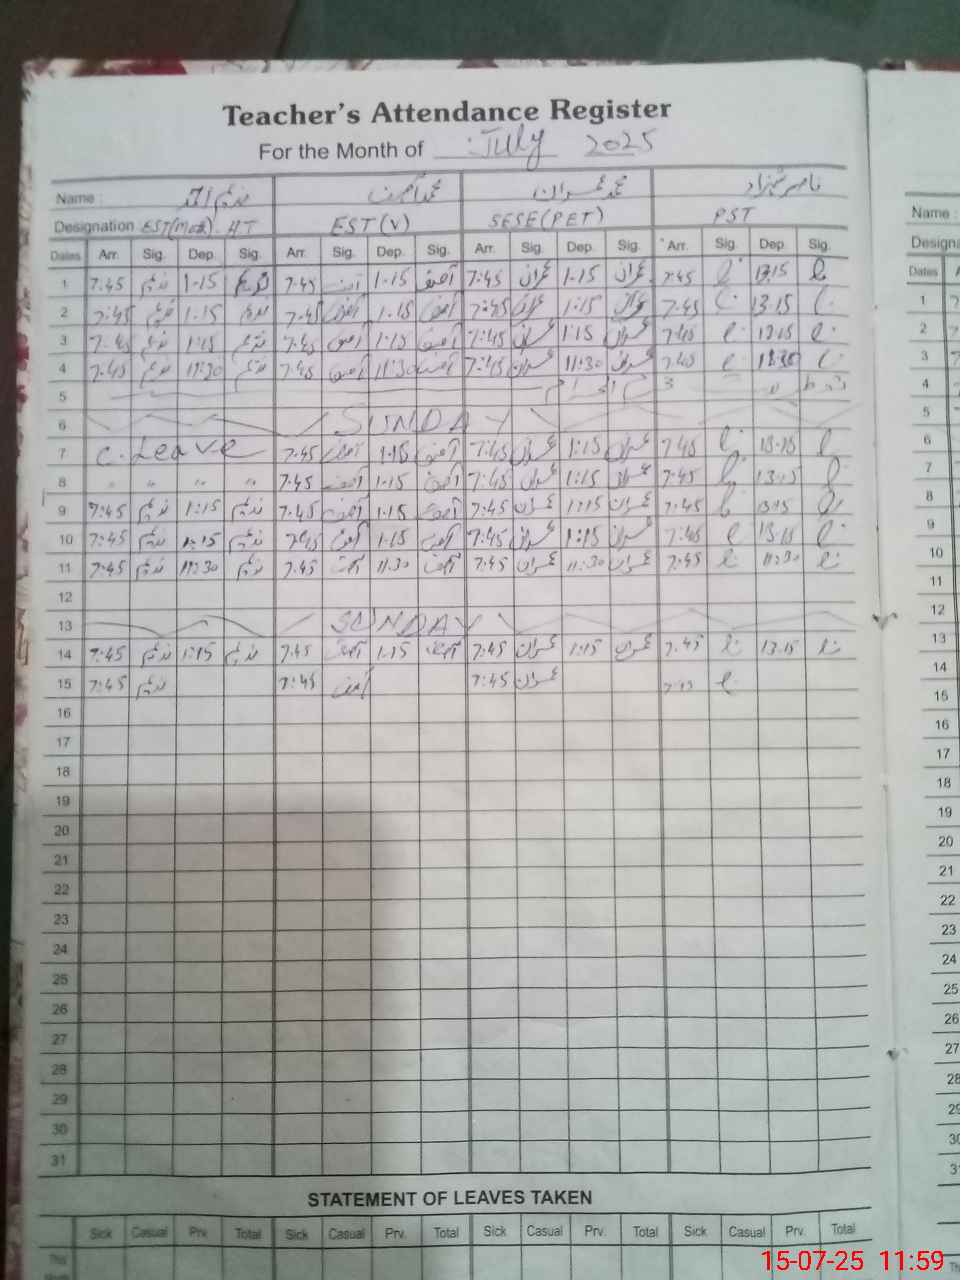 Teacher's Attendance Register
For the Month of July 2025
Name : ندیم احمد محمد آصف محمد عمران ناصر شہزاد
Designation EST(Math). H.T EST(V) SESE(PET) PST
Dates Arr. Sig. Dep. Sig. Arr. Sig. Dep. Sig. Arr. Sig. Dep. Sig. Arr. Sig. Dep. Sig.
1 7:45 ندیم 1-15 ندیم 7.45 آصف 1-15 آصف 7:45 عمران 1-15 عمران 7.45 13:15
2 7:45 ندیم 1.15 ندیم 7.45 آصف 1.15 آصف 7:45 عمران 1:15 عمران 7.45 13-15
3 7.45 ندیم 1:15 ندیم 7.45 آصف 1:15 آصف 7:45 عمران 1:15 عمران 7.45 13-15
4 7.45 ندیم 11:30 ندیم 7.45 آصف 11:30 آصف 7:45 عمران 11:30 عمران 7.45 11:30
5
6 SUNDAY
7 C. Leave 7.45 آصف 1.15 آصف 7.45 عمران 1:15 عمران 7.45 13-15
8 〃 〃 〃 〃 7.45 آصف 1.15 آصف 7:45 عمران 1:15 عمران 7.45 13-15
9 7:45 ندیم 1:15 ندیم 7.45 آصف 1.15 آصف 7:45 عمران 1:15 عمران 7.45 13-15
10 7:45 ندیم 1:15 ندیم 7.45 آصف 1.15 آصف 7:45 عمران 1:15 عمران 7:45 13-15
11 7:45 ندیم 11:30 ندیم 7.45 آصف 11.30 آصف 7:45 عمران 11:30 عمران 7:45 11:30
12
13 SUNDAY
14 7:45 ندیم 1:15 ندیم 7.45 آصف 1.15 آصف 7:45 عمران 1:15 عمران 7.45 13-15
15 7:45 ندیم 7:45 آصف 7:45 عمران
16
17
18
19
20
21
22
23
24
25
26
27
28
29
30
31
STATEMENT OF LEAVES TAKEN
Sick Casual Prv. Total Sick Casual Prv. Total Sick Casual Prv. Total Sick Casual Prv. Total
This
Name :
Dates
1
2
3
4
5
6
7
8
9
10
11
12
13
14
15
16
17
18
19
20
21
22
23
24
25
26
27
28
15-07-25 11:59